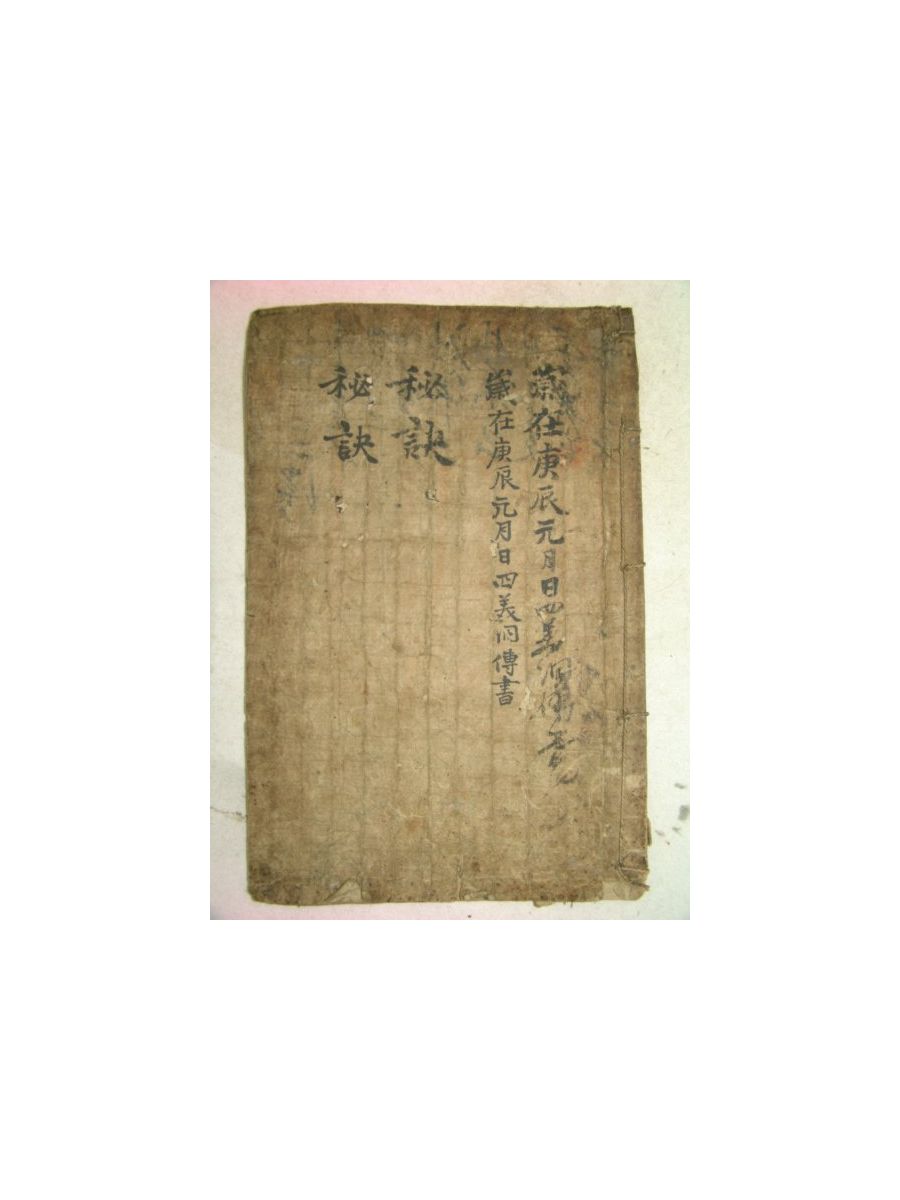 歲在庚辰元月日四美洞傳書
歲在庚辰元月日四美洞傳書
秘訣
秘訣